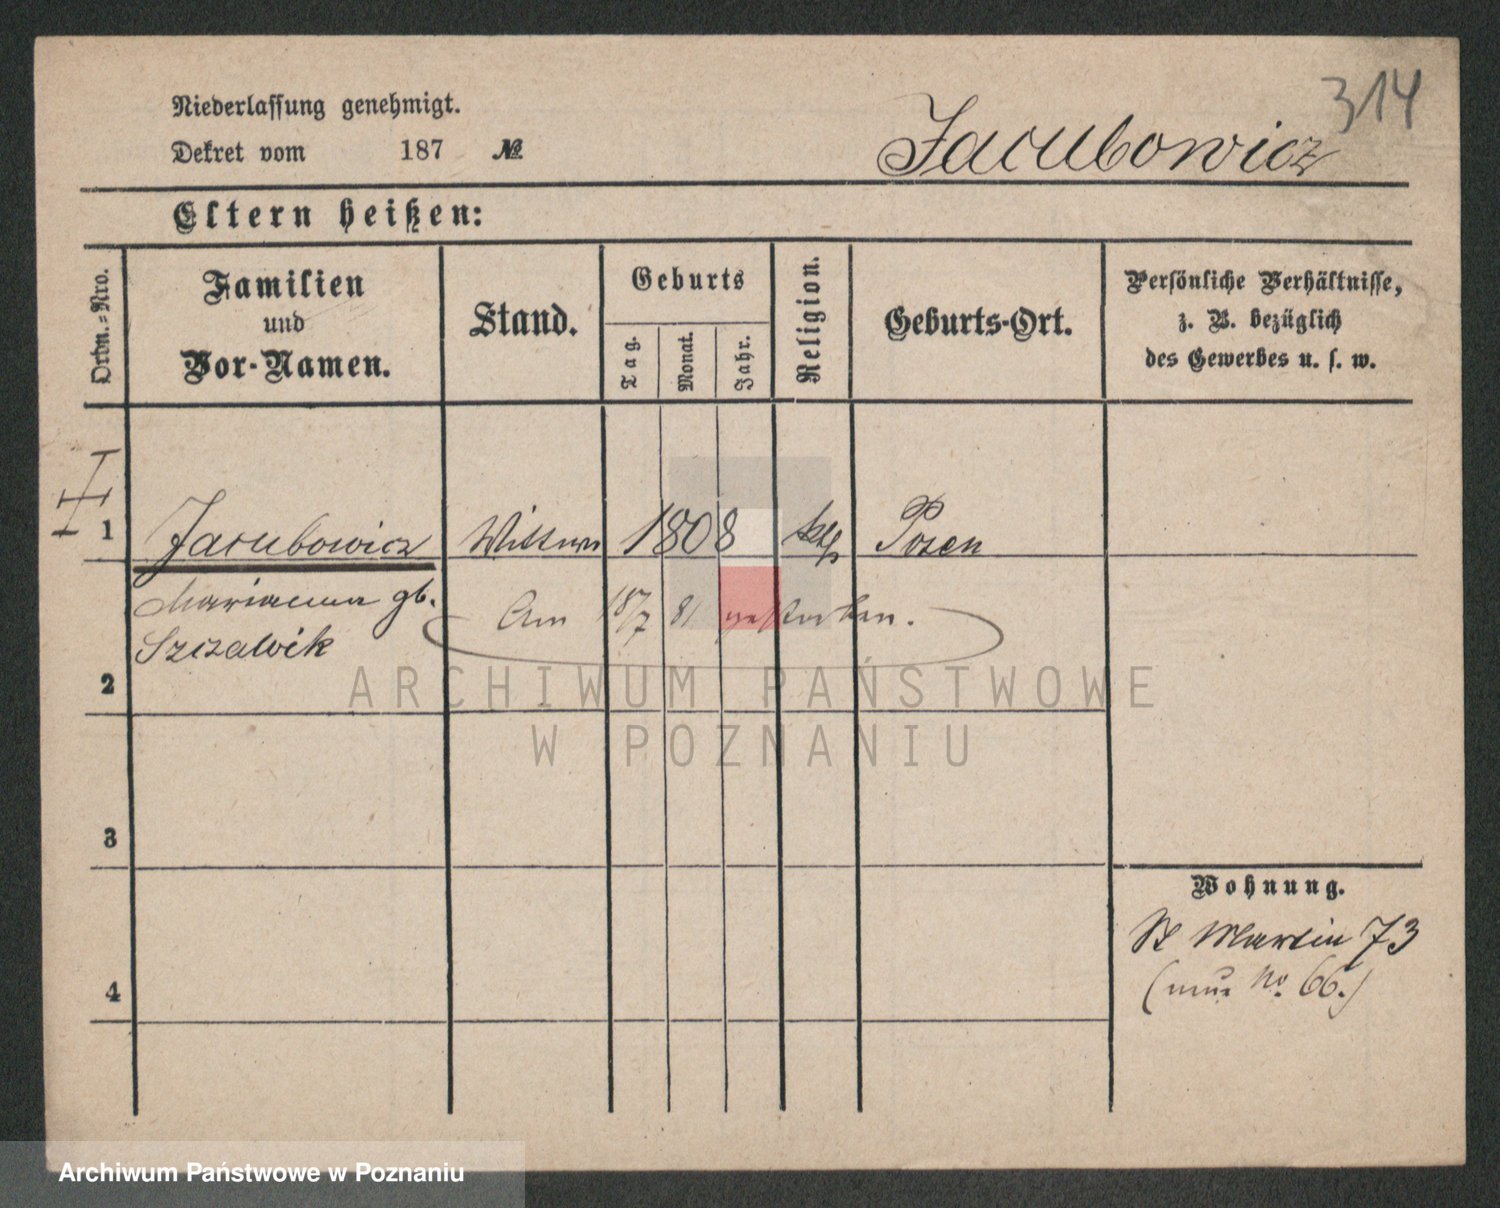 314
Niederlassung genehmigt.
Dekret vom 187 №
Jacubowicz
Eltern heißen:
Ordn.-Nro.
Familien
und
Vor-Namen.
Stand.
Geburts
Tag.
Monat.
Jahr.
Religion.
Geburts-Ort.
Persönliche Verhältnisse,
z. B. bezüglich
des Gewerbes u. s. w.
1 Jacubowicz Wittwe 1808 kth Posen
Marianna gb.
Am 18/7 81 gestorben.
Szczawik
2
ARCHIWUM PAŃSTWOWE
W POZNANIU
3
Wohnung.
St Martin 73
(neue No. 66.)
4
Archiwum Państwowe w Poznaniu